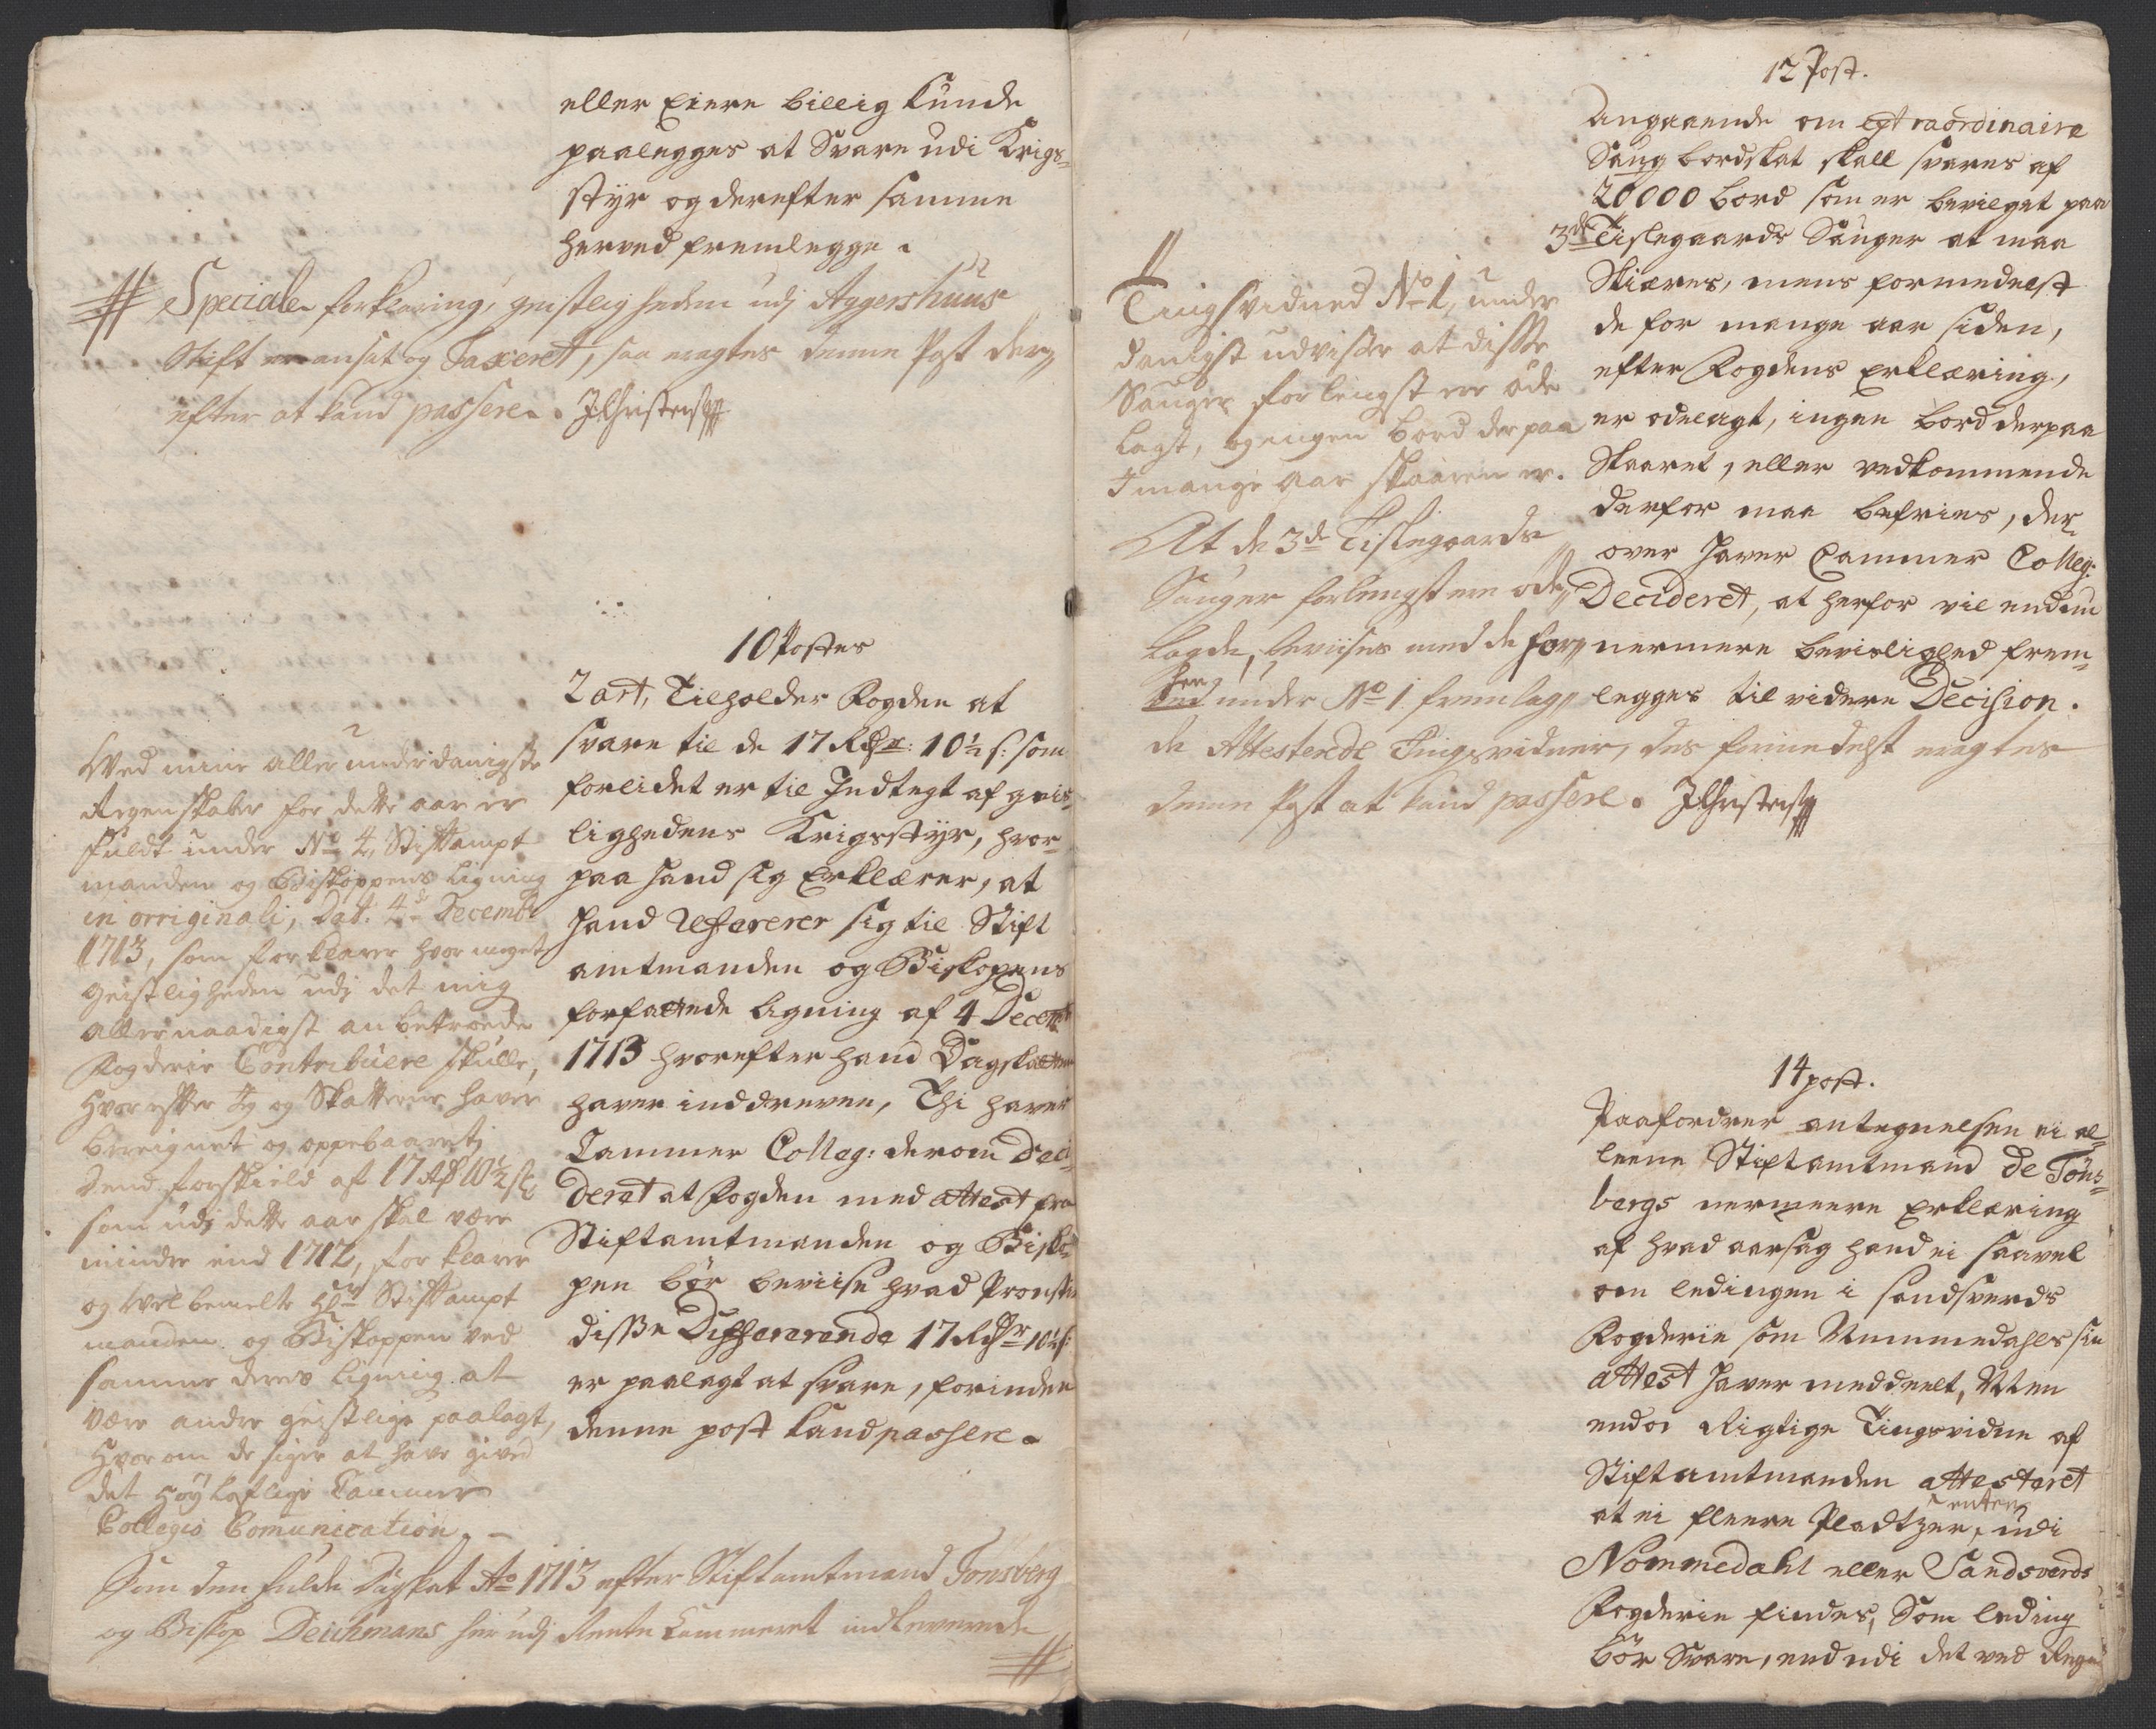 eller Eiere billig kunde
paalegges at Svare udi Krigs-
styr og derefter samme
herved fremlegge.
# Speciale forklaring, geistligheden udj Aggershuus
Stift er ansat og Taxeret, saa eragtes denne Post der,,
efter at kand passere. JChristensen
10 Postes
2 art, Tilholder Fogden at
svare til de 17 Rdr: 10½ s: som
forlidet er til Indtegt af geist-
lighedens Krigsstyr, hvor-
paa hand sig Erklærer, at
hand Refererer sig til Stift
amtmanden og Biskopens
forfattede Ligning af 4 Decemb
1713 hvorefter hand Dagskatten
haver inddreven, Thi haver
Cammer Colleg: derom Deci-
deret at Fogden med Attest fra
Stiftamtmanden og Bisko-
pen bør beviise hvad Pronstie
disse Differerende 17 Rdr 10½ s:
er paalagt at svare, forinden
denne post kand passere.
Ved mine aller underdanigste
Regenskaber for dette aar er
fuldt under No 4, Stiftampt
manden og Biskoppens Ligning
in orriginali, Dat: 4de Decembr
1713, som forklarer hvor meget
geistligheden udj det mig
allernaadigst anbetroede
Fogderie Contribuere skulle,
hvorefter Jeg og Skatterne haver
bereignet og oppebaaret;
Dend forskield af 17 Rdr 10½ s;
som udj dette aar skal være
minder end 1712, forklarer
og Velbemelte Hr Stiftampt
manden og Biskoppen ved
samme deres Ligning at
være andre geistlige paalagt,
Hvorom de siger at have gived
det Høyloflige Cammer
Collegio Comunication. –
Som den fulde Dagskat Ao 1713 efter Stiftamtmand Tonsberg
og Biskop Deichmans her udj Rente Cammeret indleverede
#
12 Post.
Angaaende om extraordinaire
Saug bordskat skall svares af
20000 bord som er bevilget paa
3de Tislegaards Sauger at maa
Skiæres, mens formedelst
de for mange aar siden,
efter Fogdens Erklæring,
er ødelagt, ingen bord derpaa
Skaaret, eller vedkommende
derfor maa befries, der
over haver Cammer Colleg:
Decideret, at herfor vil endnu
nermere bevislighed frem-
legges til videre Decision.
Tingsvidned No 1, under
danigst udviser at disse
Sauger for lengst ere øde
lagt, og ingen bord derpaa
I mange aar skaaren er.
At de 3de Tislegaards
Sauger forlengst ere øde,,
lagde, beviises med de for,,
hen under No 1 fremlag,,
de Attesterede Tingsvidner, des formedelst eragtes
denne Post at kand passere. JChristensen
14 post.
Paafordrer antegnelsen ei al-
leene Stiftamtmand de Tøns-
bergs nermeere Erklæring
af hvad aarsag hand ei saavel
om ledingen i Sandsverds
Fogderie som Nummedahls sin
attest haver meddeelt, Men
endoc Rigtige Tingsvidne af
Stiftamtmanden attesteret
at ei fleere Pladtzer, enten udi
Nommedahl eller Sandsverds
Fogderie findes, Som leding
bør Svare, end udi det ved Regn